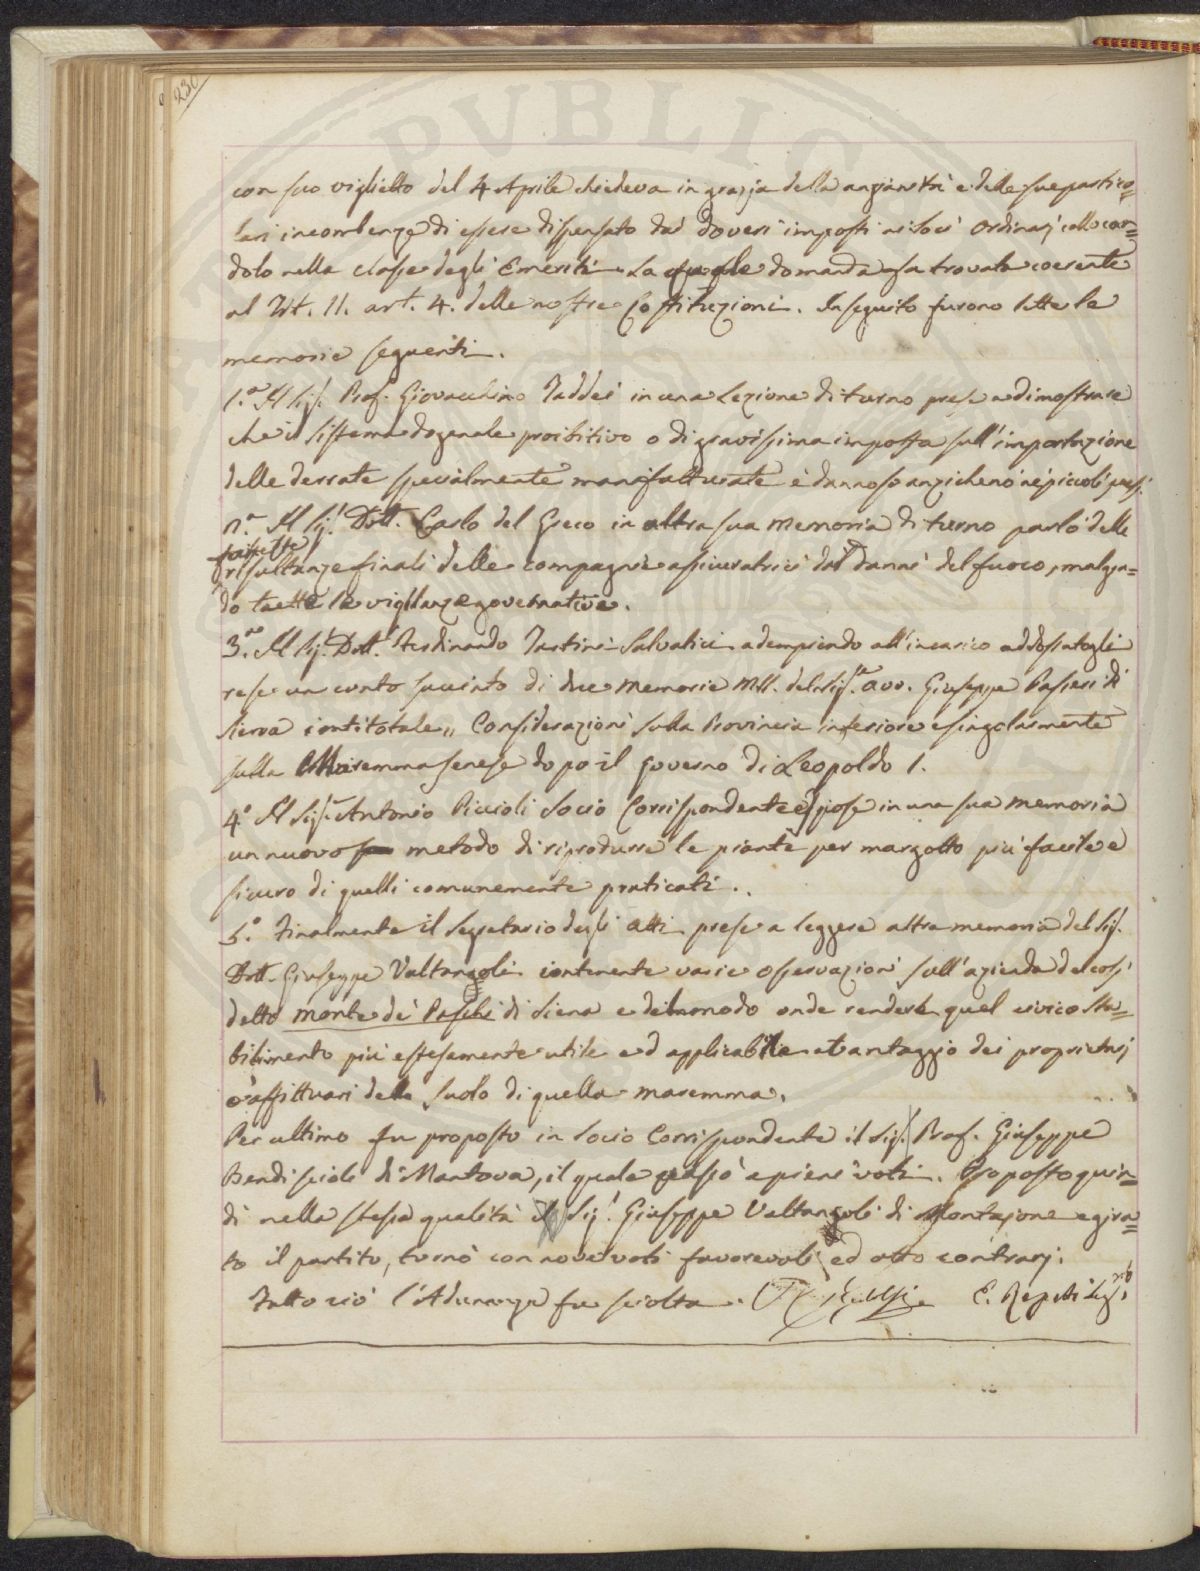 230
con suo viglietto del 4 Aprile chiedeva in grazia della anzianità e delle sue partico=
lari incombenze di essere dispensato dai doveri imposti ai Soci Ordinarj collocan=
dolo nella classe degli Emeriti. La quale domanda fu trovata coerente
al Tit. II. art. 4. delle nostre Costituzioni. In seguito furono lette le
memorie seguenti.
1.a Il Sig. Prof. Giovacchino Taddei in una Lezione di turno prese a dimostrare
che il sistema doganale proibitivo o di gravissima imposta sull'importazione
delle derrate specialmente manifatturate è dannoso anzichenò ne' piccoli paesi.
2.a Il Sig. Dott. Carlo del Greco in altra sua memoria di turno parlò delle
risultanze finali delle compagnie assicuratrici dai danni del fuoco, malgra=
do tutte le vigilanze governative.
3.a Il Sig. Dott. Ferdinando Tartini Salvatici adempiendo all'incarico addossatogli
rese un conto succinto di due memorie MSS. del Sig.re Avv. Giuseppe Passeri di
Siena intitolate „ Considerazioni sulla Provincia inferiore e singolarmente
sulla Maremma senese dopo il governo di Leopoldo I.
4.o Il Sig.r Antonio Piccioli Socio Corrispondente espose in una sua memoria
un nuovo metodo di riprodurre le piante per margotto più facile e
sicuro di quelli comunemente praticati.
5.o Finalmente il Segretario degli Atti prese a leggere altra memoria del Sig.
Dott. Giuseppe Valtangoli contenente varie osservazioni sull'azienda del così
detto Monte de' Paschi di Siena e del modo onde rendere quel civico sta=
bilimento più estesamente utile ed applicabile a vantaggio dei proprietarj
o affittuari dello suolo di quella maremma.
Per ultimo fu proposto in Socio Corrispondente il Sig. Prof. Giuseppe
Bendiscioli di Mantova, il quale passò a pieni voti. Proposto quin=
di nella stessa qualità il Sig. Giuseppe Valtangoli di Montajone e gira=
to il partito, tornò con nove voti favorevoli ed otto contrarj.
Fatto ciò l'Adunanza fu sciolta. E. Repetti Seg.rio